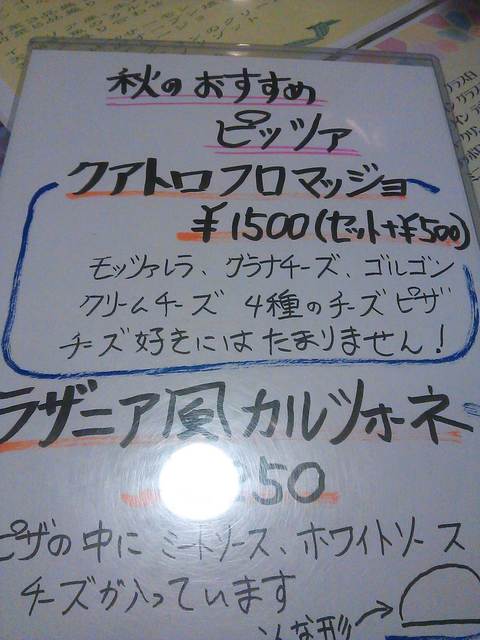 秋のおすすめ
ピッツァ
クアトロフロマッジョ
¥1500(セット+¥500)
モッツァレラ、グラナチーズ、ゴルゴン
クリームチーズ 4種のチーズピザ
チーズ好きにはたまりません!
ラザニア風カルツォーネ
50
ピザの中にミートソース、ホワイトソース
チーズが入っています
こんな形→